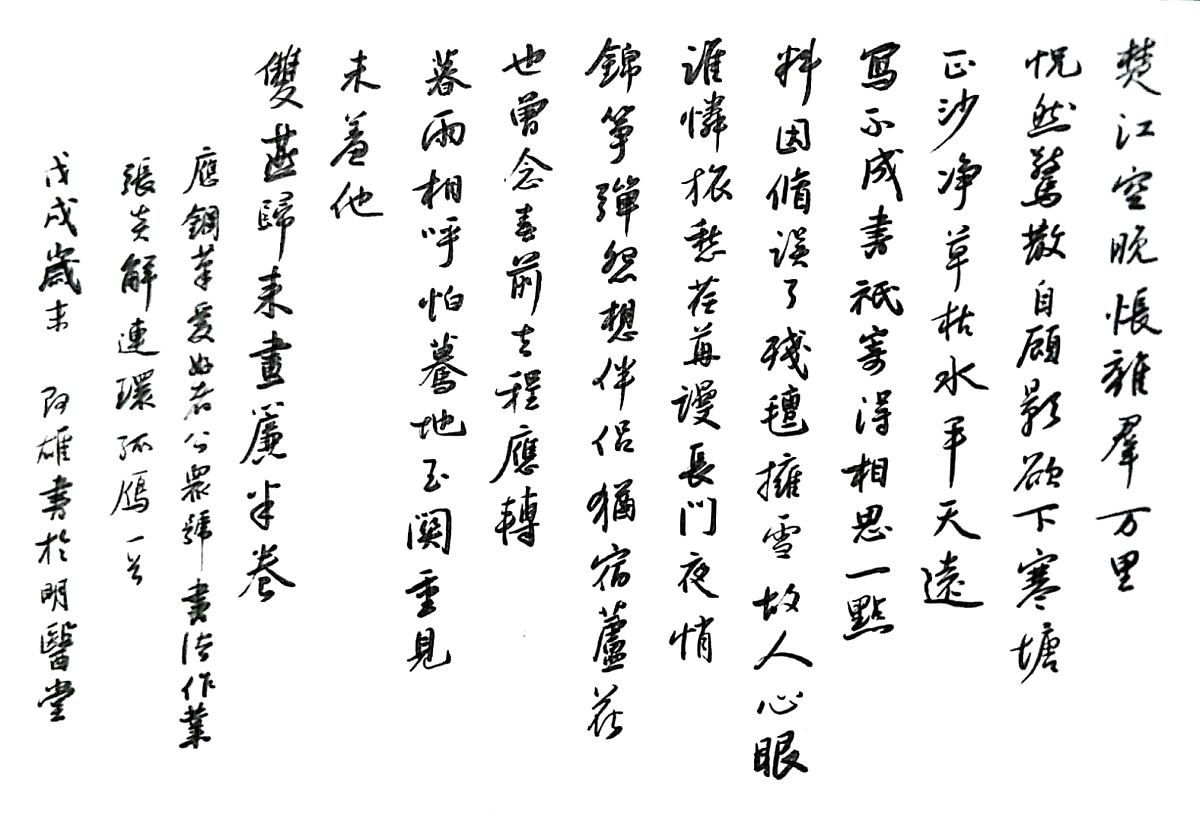 楚江空晚悵離羣万里
怳然驚散自顧影欲下寒塘
正沙净草枯水平天遠
寫不成書祇寄得相思一點
料因循誤了殘氈擁雪故人心眼
誰憐旅愁荏苒謾長門夜悄
錦筝彈怨想伴侣猶宿蘆花
也曾念春前去程應轉
暮雨相呼怕驀地玉関重見
未羞他
雙燕歸来畫簾半卷
應鋼筆愛好者公眾號書法作業
張炎解連環孤鴈一首
戊戌歲末 阿雄書於明醫堂